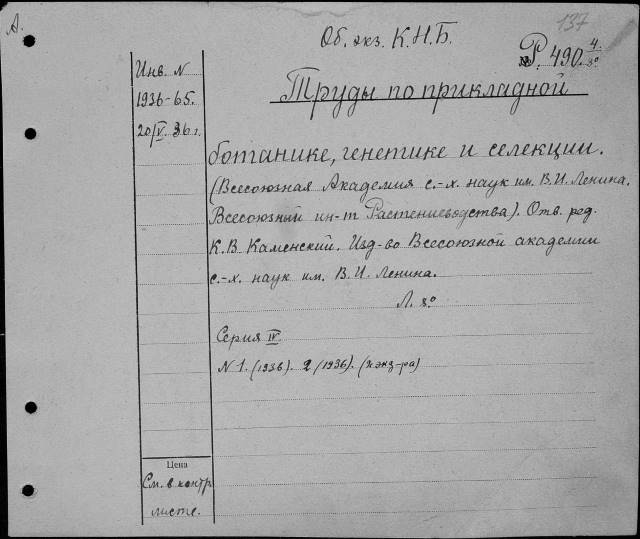 А.
137
Об. экз. К.Н.Б.
№ Р. 490. 4. 8º
Инв. N
1936-65.
20/V. 36 г.
Труды по прикладной
ботанике, генетике и селекции.
(Всесоюзная Академия с.-х. наук им. В.И. Ленина.
Всесоюзный ин-т Растениеводства). Отв. ред.
К.В. Каменский. Изд-во Всесоюзной академии
с.-х. наук им. В.И. Ленина.
Л. 8º
Серия IV.
N 1. (1936). 2 (1936).
Цена
См. в контр.
листе.